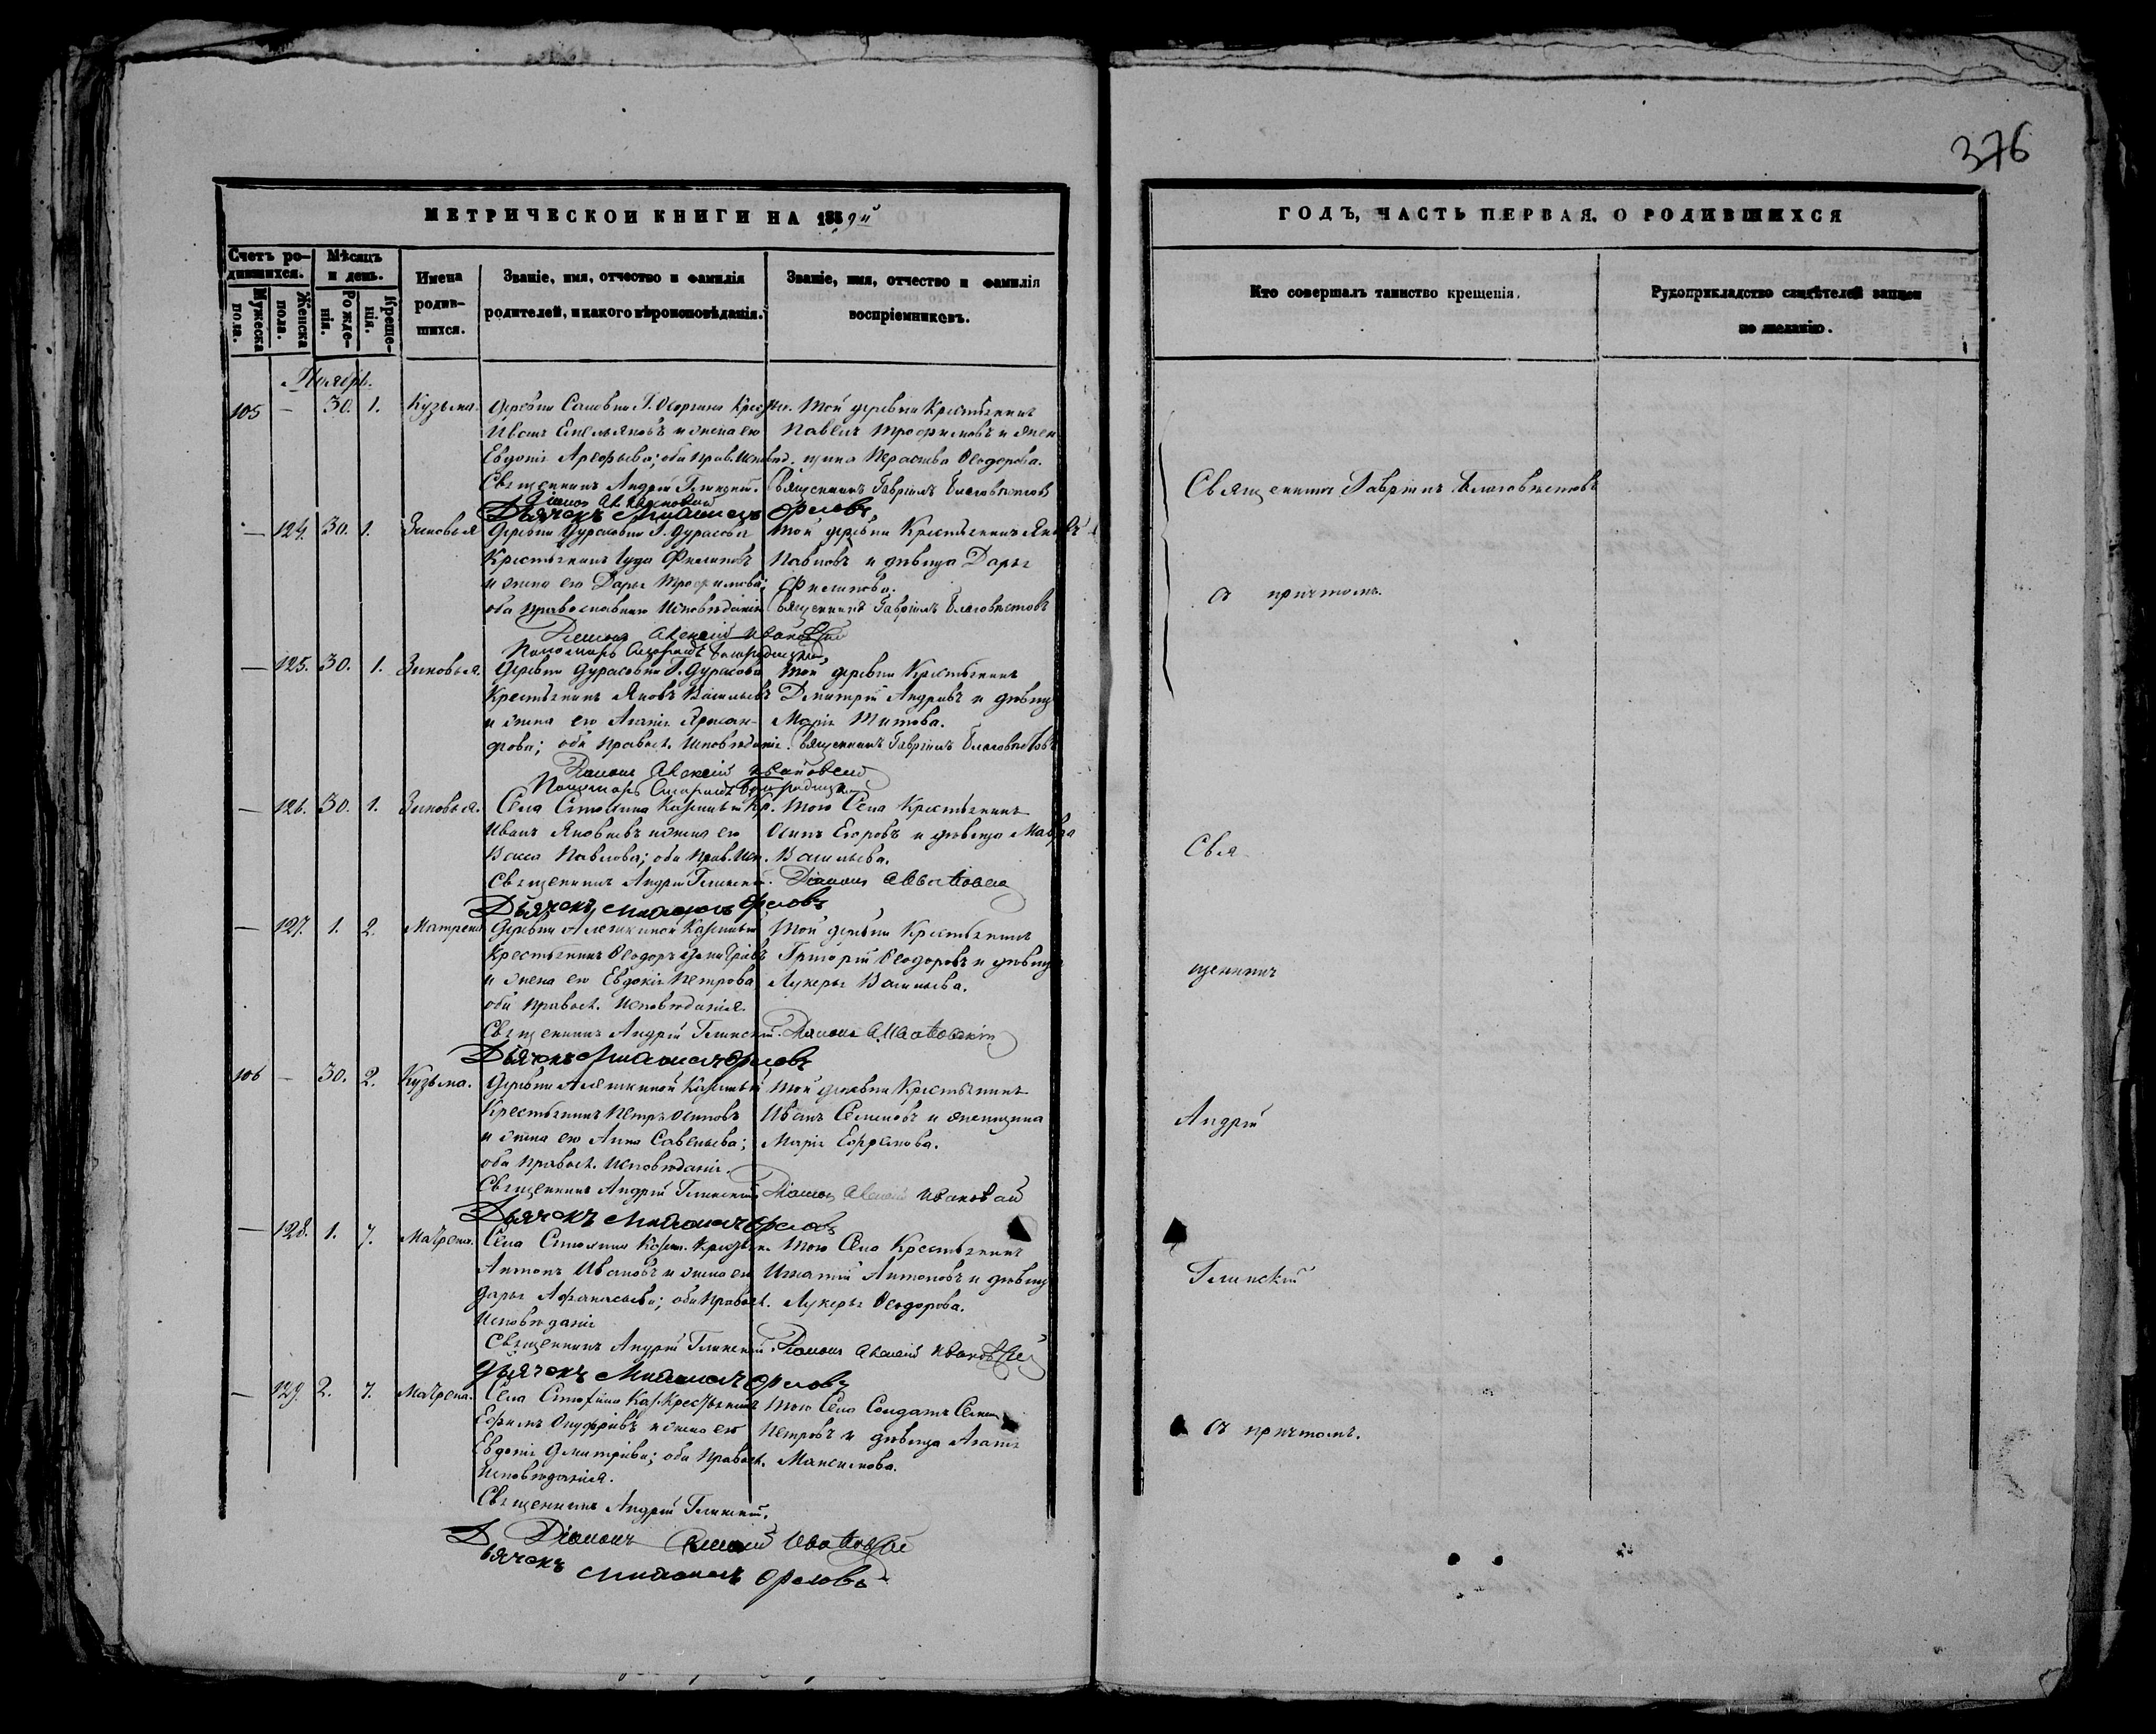 376
МЕТРИЧЕСКОЙ КНИГИ НА 1859й
ГОДЪ, ЧАСТЬ ПЕРВАЯ, О РОДИВШИХСЯ
Счетъ родившихся.
Мужеска пола.
Женска пола.
Мѣсяцъ и день.
Рожденія.
Крещенія.
Имена родившихся.
Званіе, имя, отчество и фамилія
родителей, и какого вѣроисповѣданія.
Званіе, имя, отчество и фамилія
воспріемниковъ.
Кто совершалъ таинство крещенія.
Рукоприкладство свидѣтелей записи
по желанію.
105 — 30. 1. Кузьма. Деревни
Той деревни Крестьянинъ
Иванъ Емельяновъ и жена его
Павелъ Трофимовъ и жен
Евдокія Арефьева; оба прав. исповѣд.
щина Ѳеодорова.
Священникъ Андрей Глинскій.
Священникъ Гавріилъ Благовѣстовъ
Дьячекъ Орловъ
— 124. 30. 1. Зиновья Деревни Дурасовки Г. Дурасова
Той деревни Крестьянинъ Яковъ
Крестьянинъ Іуда Филиповъ
Павловъ и дѣвица Дарья
и жена его Дарья Трофимова;
Филипова.
оба православнаго исповѣданія
Священникъ Гавріилъ Благовѣстовъ
Діаконъ Алексей Ивановскій
Пономарь
— 125. 30. 1. Зиновья. Деревни Дурасовки Г. Дурасова
Той деревни Крестьянинъ
Крестьянинъ Яковъ Васильевъ
Дмитрій Андреевъ и дѣвица
и жена его Агапія
Марія Титова.
оба правосл. исповѣданія.
Священникъ Гавріилъ Благовѣстовъ
Діаконъ Алексей Ивановскій
Пономарь
— 126. 30. 1. Зиновья. Села Столыпина Казенный Кр.
Того Села Крестьянинъ
Иванъ Яковлевъ и жена его
Осипъ Егоровъ и дѣвица Мавра
Васса Павлова; оба прав. исп.
Васильева.
Священникъ Андрей Глинскій.
Діаконъ А Ивановскій
Дьячекъ Орловъ
— 127. 1. 2. Матрена Деревни Алешкиной Казенный
Той деревни Крестьянинъ
Крестьянинъ Ѳеодоръ
Григорій Ѳеодоровъ и дѣвица
и жена его Евдокія Петрова
Лукерья Васильева.
оба правосл. исповѣданія.
Священникъ Андрей Глинскій.
Діаконъ А Ивановскій
Дьячекъ Орловъ
106 — 30. 2. Кузьма. Деревни Алешкиной Казенный
Той деревни Крестьянинъ
Крестьянинъ Петръ Осиповъ
Иванъ Семеновъ и женщина
и жена его Анна Савельева;
Марія Ефремова.
оба правосл. исповѣданія.
Священникъ Андрей Глинскій
Діаконъ Алексей Ивановскій
Дьячекъ Орловъ
— 128. 1. 7. Матрена. Села Столыпина Казен. Крестьян.
Того Села Крестьянинъ
Антонъ Ивановъ и жена его
Игнатій Антоновъ и дѣвица
Дарья Афанасьева; оба правосл.
Лукерья Ѳеодорова.
исповѣданія
Священникъ Андрей Глинскій.
Діаконъ Алексей Ивановскій
Дьячекъ Орловъ
— 129. 2. 7. Матрена. Села Столыпина Каз. Крестьянинъ
Того Села Солдатъ Семенъ
Ефимъ Онуфріевъ и жена его
Петровъ и дѣвица Агапія
Евдокія Дмитріева; оба правосл.
Максимова.
исповѣданія.
Священникъ Андрей Глинскій.
Діаконъ Алексей Ивановскій
Дьячекъ Орловъ
Священникъ Гавріилъ Благовѣстовъ
съ причтомъ.
Свя
щенникъ
Андрей
Глинскій
съ причтомъ.